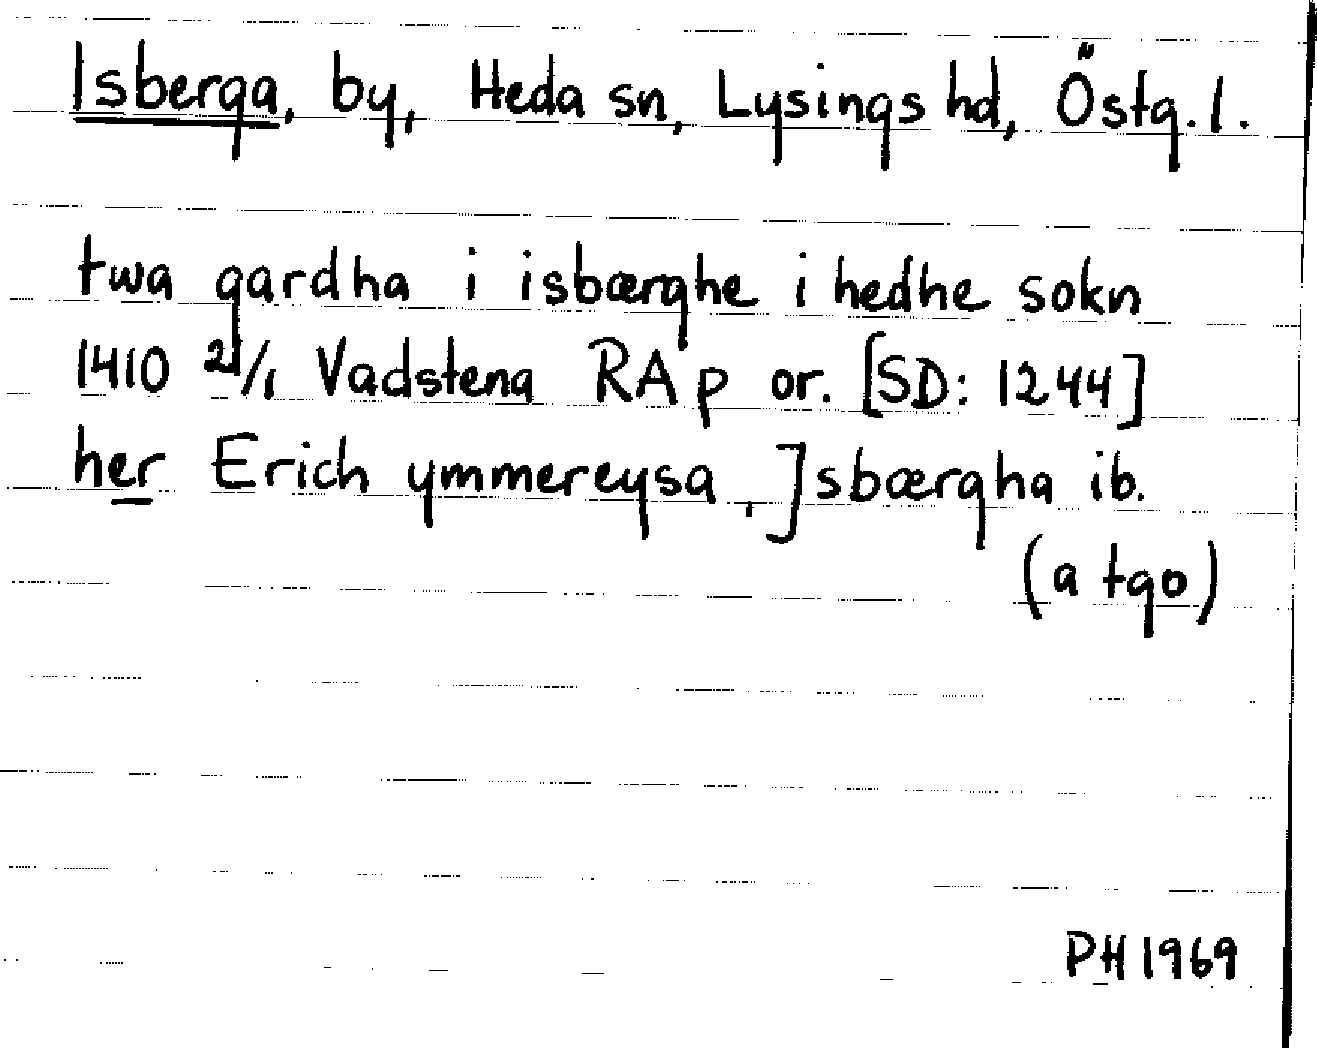 Isberga, by, Heda sn, Lysings hd, Östg. l.
twa gardha i isbærghe i hedhe sokn
1410 2/1 Vadstena RAp or. [SD: 1244]
her Erich ymmereysa, Jsbærgha ib.
(a tgo)
PH 1969